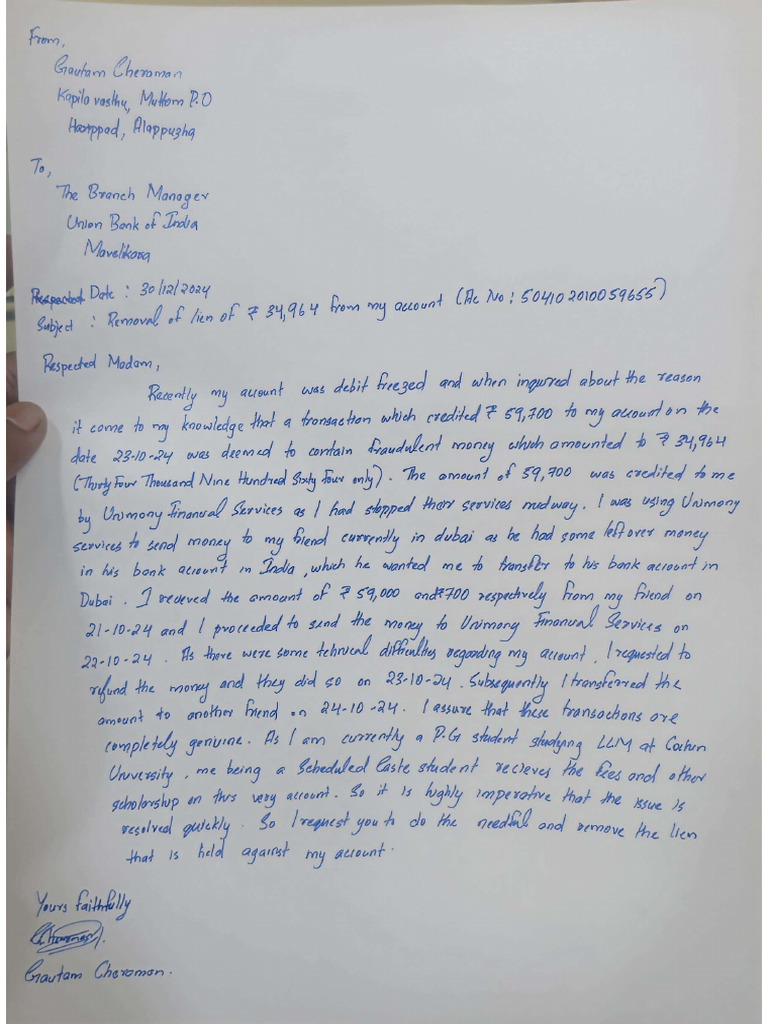 From,
Gautam Cheraman
Kapilavasthu, Muttom P.O
Harippad, Alappuzha
To,
The Branch Manager
Union Bank of India
Mavelikara
Date : 30/12/2024
Subject : Removal of lien of ₹ 34,964 from my account (Ac No : 504102010059655)
Respected Madam,
Recently my acount was debit freezed and when inqured about the reason
it come to my knowledge that a transaction which credited ₹ 59,700 to my account on the
date 23-10-24 was deemed to contain fraudulent money which amounted to ₹ 34,964
(Thirty Four Thousand Nine Hundred Sixty Four only). The amount of 59,700 was credited to me
by Unimony Financial Services as I had stopped their services midway. I was using Unimony
services to send money to my friend currently in dubai as he had some left over money
in his bank account in India, which he wanted me to transfer to his bank account in
Dubai. I recieved the amount of ₹ 59,000 and ₹700 respectively from my friend on
21-10-24 and I proceeded to send the money to Unimony Financial Services on
22-10-24. As there were some tehnical difficulties regarding my account, I requested to
refund the money and they did so on 23-10-24. Subsequently I transferred the
amount to another friend on 24-10-24. I assure that these transactions are
completely geniune. As I am currently a P.G student studying LLM at Cochin
University, me being a Scheduled Caste student recieves the fees and other
scholarship on this very account. So it is highly imperative that the issue is
resolved quickly. So I request you to do the needful and remove the lien
that is held against my account.
Yours faithfully
Gautam Cheraman.